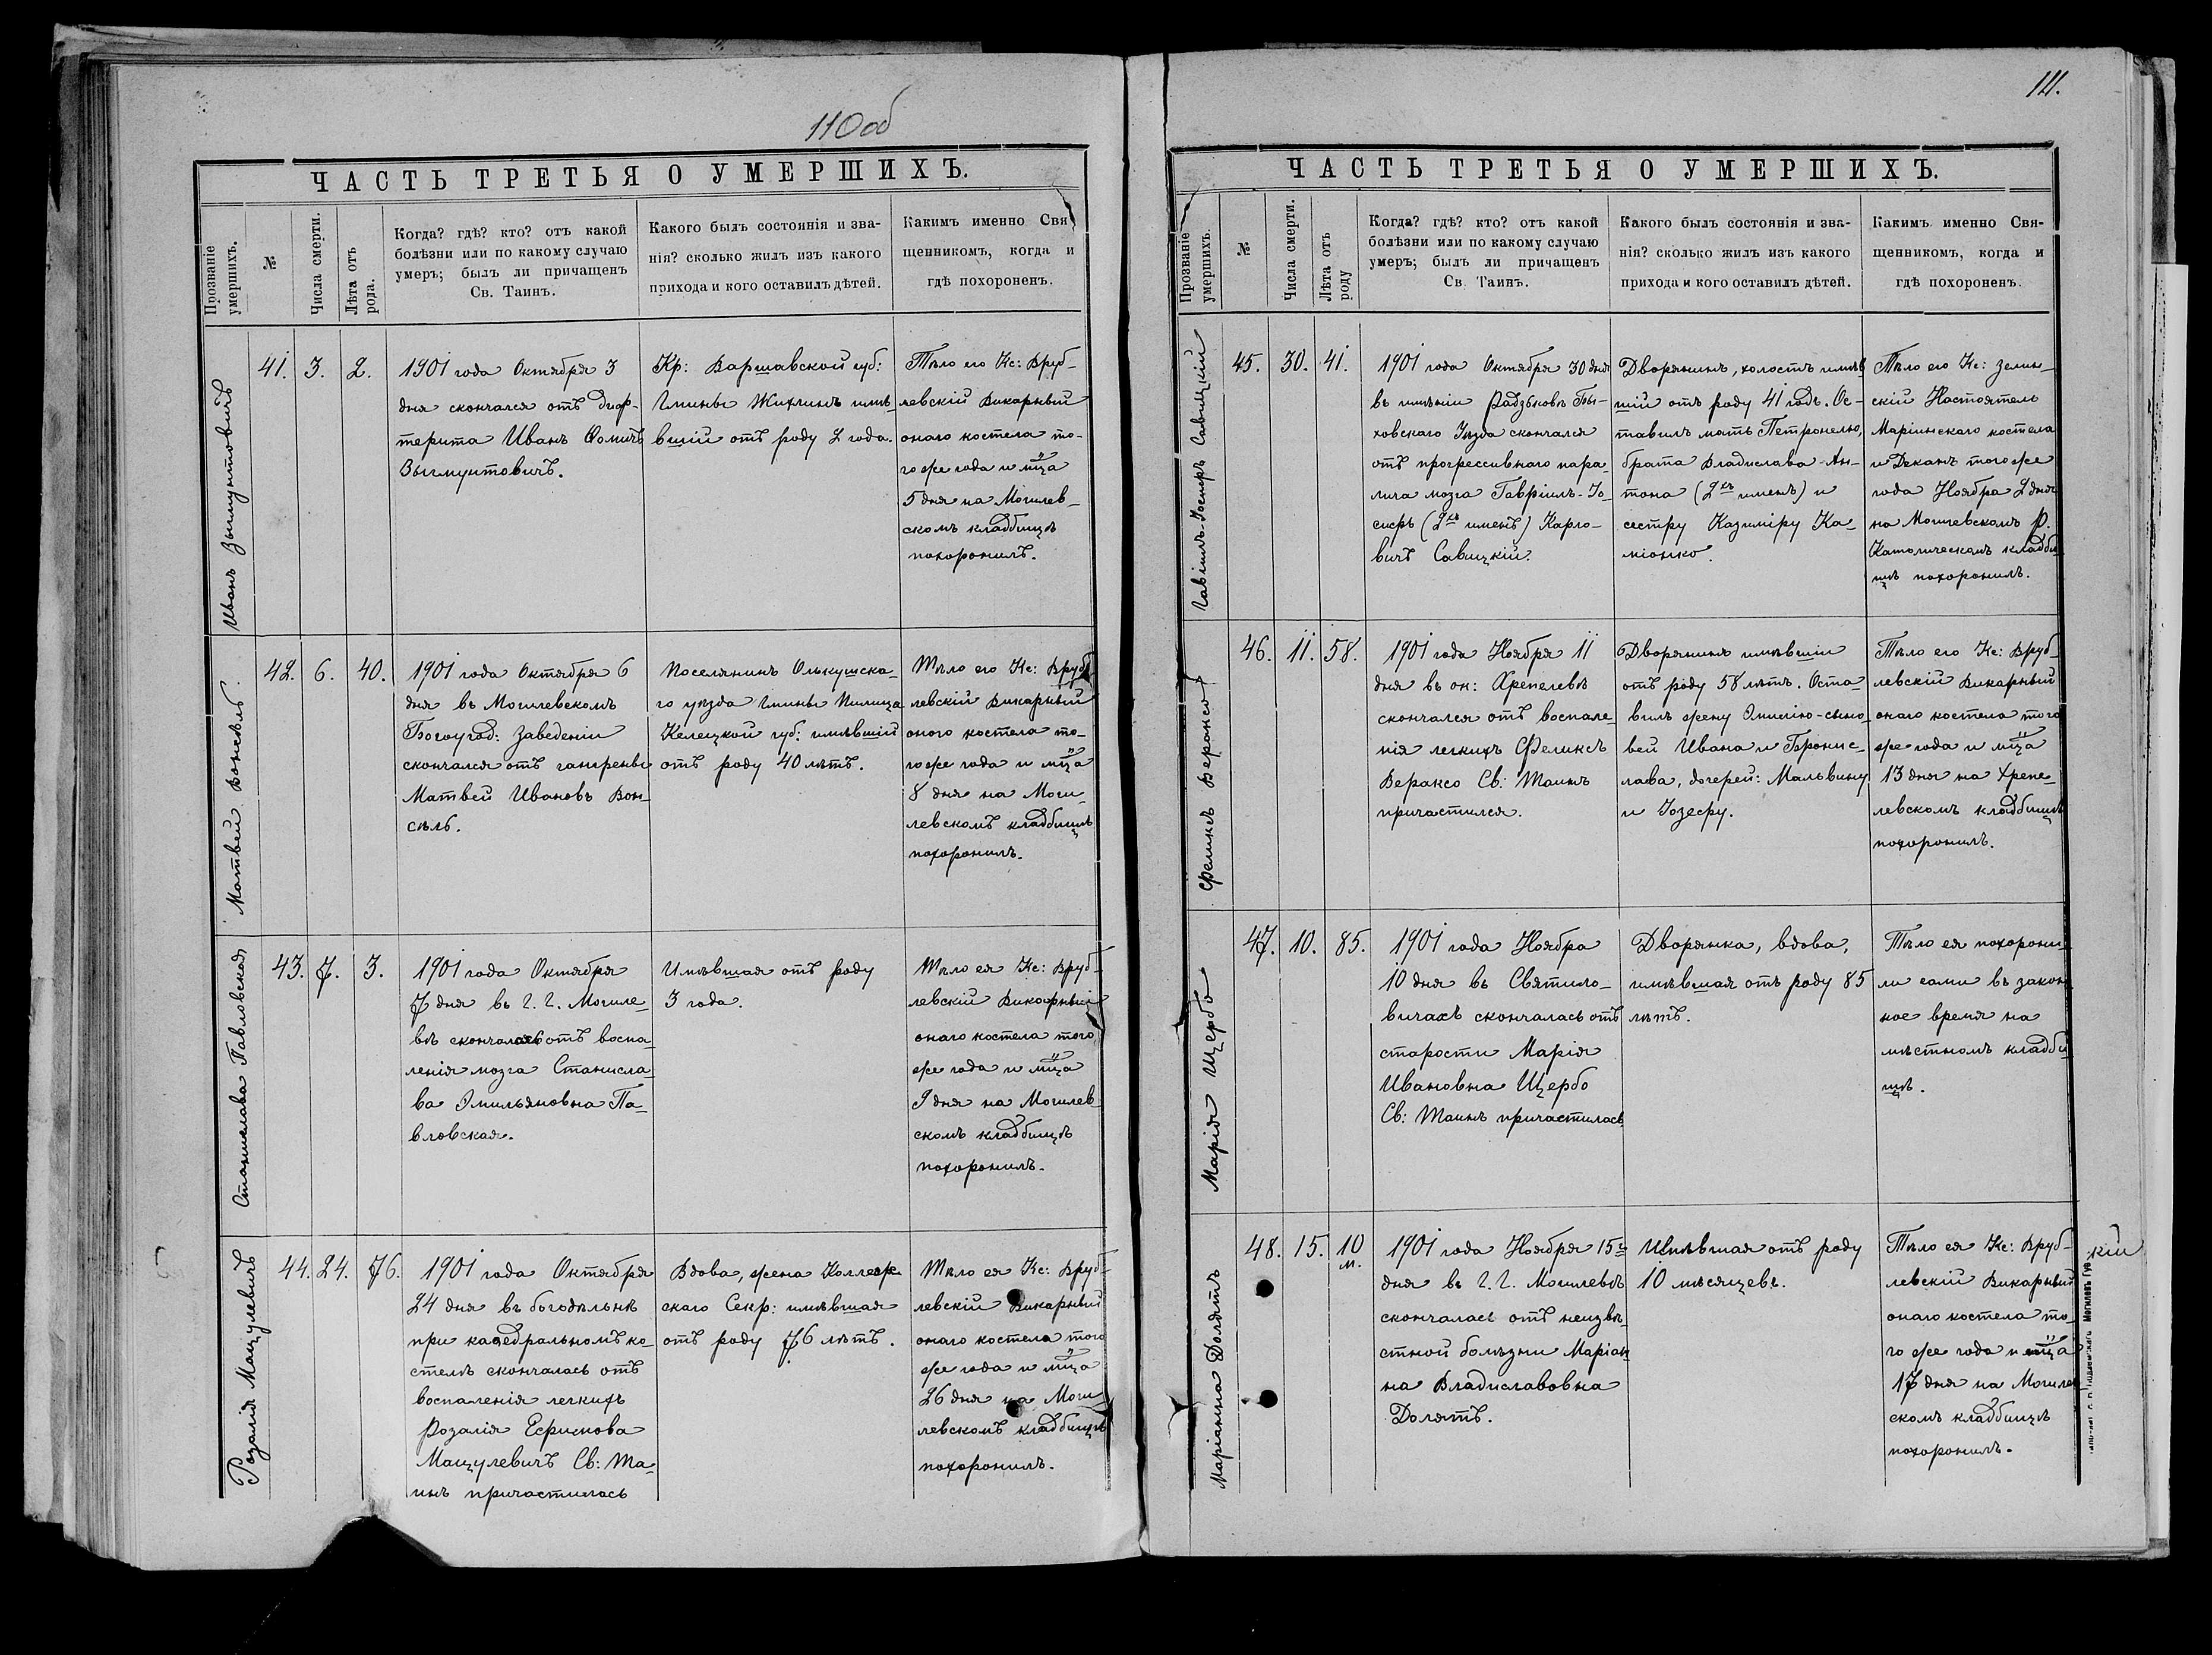 110 об
ЧАСТЬ ТРЕТЬЯ О УМЕРШИХЪ.
Прозваніе умершихъ.
№
Числа смерти.
Лѣта отъ рода.
Когда? гдѣ? кто? отъ какой
болѣзни или по какому случаю
умеръ; былъ ли причащенъ
Св. Таинъ.
Какого былъ состоянія и зва-
нія? сколько жилъ изъ какого
прихода и кого оставилъ дѣтей.
Какимъ именно Свя
щенникомъ, когда и
гдѣ похороненъ.
Иванъ Зыгмунтовичъ
41.
3.
2.
1901 года Октября 3
дня скончался отъ диф-
терита Иванъ Ѳомичъ
Зыгмунтовичъ.
Кр: Варшавской губ:
Гмины Жихлинъ имѣ-
вшій отъ роду 2 года.
Тѣло его Кс: Вруб-
левскій Викарный
онаго костела то-
го же года и мца
5 дня на Могилев-
скомъ кладбищѣ
похоронилъ.
Матвей Вонсѣль.
42.
6.
40.
1901 года Октября 6
дня въ Могилевскомъ
Богоугод: Заведеніи
скончался отъ гангрены
Матвей Ивановъ Вон-
сѣль.
Поселянинъ Олькушска-
го уѣзда Гмины Пилица
Келецкой губ: имѣвшій
отъ роду 40 лѣтъ.
Тѣло его Кс: Вруб
левскій Викарный
оного костела то-
го же года и мца
8 дня на Моги-
левскомъ кладбищѣ
похоронилъ.
Станислава Павловская
43.
7.
3.
1901 года Октября
7 дня въ г. г. Могиле-
вѣ скончалась отъ воспа-
ленія мозга Станисла-
ва Эмильяновна Па-
вловская.
Имѣвшая отъ роду
3 года.
Тѣло ея Кс: Вруб-
левскій Викарный
онаго костела того
же года и мца
9 дня на Могилев
скомъ кладбищѣ
похоронилъ.
Розалія Мацулевичъ
44.
24.
76.
1901 года Октября
24 дня въ богодѣльнѣ
при каѳедральномъ ко-
стелѣ скончалась отъ
воспаленія легкихъ
Розалія Ефимова
Мацулевичъ Св: Та-
инъ причастилась
Вдова, жена Коллеж
скаго Секр: имѣвшая
отъ роду 76 лѣтъ.
Тѣло ея Кс: Вруб-
левскій Викарный
онаго костела того
же года и мца
26 дня на Моги
левскомъ кладбищѣ
похоронилъ.
111.
ЧАСТЬ ТРЕТЬЯ О УМЕРШИХЪ.
Прозваніе умершихъ.
№
Числа смерти.
Лѣта отъ роду
Когда? гдѣ? кто? отъ какой
болѣзни или по какому случаю
умеръ; былъ ли причащенъ
Св. Таинъ.
Какого былъ состоянія и зва-
нія? сколько жилъ изъ какого
прихода и кого оставилъ дѣтей.
Какимъ именно Свя-
щенникомъ, когда и
гдѣ похороненъ.
Гавіилъ-Іосифъ Савицкій
45.
30.
41.
1901 года Октября 30 дня
въ имѣніи Радзьковѣ Бы-
ховскаго Уѣзда скончался
отъ прогрессивнаго пара-
лича мозга Гавріилъ-Іо-
сифъ (2хъ именъ) Карло-
вичъ Савицкій.
Дворянинъ, холостъ имѣв
шій отъ роду 41 годъ. Ос-
тавилъ мать Петронелю,
брата Владислава-Ан-
тона (2хъ именъ) и
сестру Казиміру Ка-
міонко.
Тѣло его Кс: Зелин-
скій Настоятель
Маріинскаго костела
и Деканъ того же
года Ноября 2 дня
на Могилевскомъ Р.
Католическомъ кладби
щѣ похоронилъ.
Феликсъ Вераксо
46.
11.
58.
1901 года Ноября 11
дня въ ок: Хрепелевѣ
скончался отъ воспале-
нія легкихъ Феликсъ
Вераксо Св: Таинъ
причастился.
Дворянинъ имѣвшій
отъ роду 58 лѣтъ. Оста-
вилъ жену Эмилію-сыно-
вей Ивана и Бронис-
лава, дочерей: Мальвину
и Іозефу.
Тѣло его Кс: Вруб-
левскій Викарный
онаго костела того
же года и мца
13 дня на Хрепе-
левскомъ кладбищѣ
похоронилъ.
Марія Щербо
47.
10.
85.
1901 года Ноября
10 дня въ Святило-
вичахъ скончалась отъ
старости Марія
Ивановна Щербо
Св: Таинъ причастилась
Дворянка, вдова,
имѣвшая отъ роду 85
лѣтъ.
Тѣло ея похорони-
ли сами въ закон
ное время на
мѣстномъ кладби
щѣ.
Маріанна Долятъ
48.
15.
10 м.
1901 года Ноября 15го
дня въ г. г. Могилевѣ
скончалась отъ неизвѣ-
стной болѣзни Маріан
на Владиславовна
Долятъ.
Имѣвшая отъ роду
10 мѣсяцевъ.
Тѣло ея Кс: Вруб-
левскій Викарный
онаго костела то-
го же года и мца
17 дня на Могилев
скомъ кладбищѣ
похоронилъ.
кій